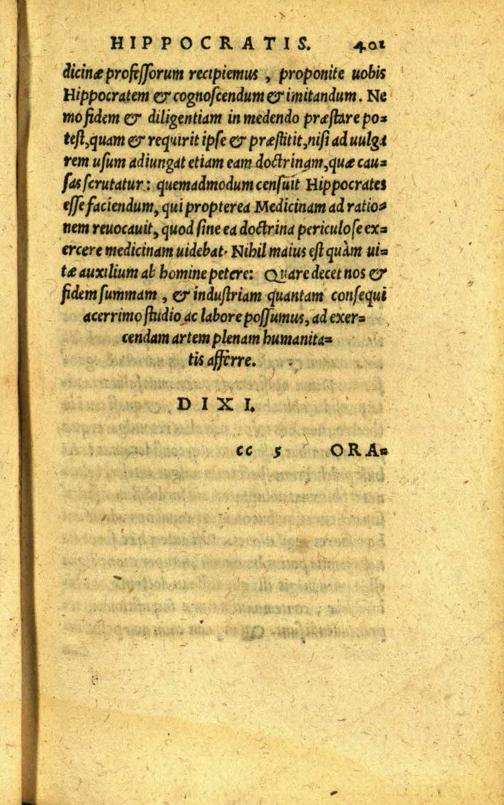 HIPPOCRATIS. 401
dicinæ professorum recipiemus, proponite uobis
Hippocratem & cognoscendum & imitandum. Ne
mo fidem & diligentiam in medendo præstare po=
test, quam & requirit ipse & præstitit, nisi ad uulga
rem usum adiungat etiam eam doctrinam, quæ cau=
sas scrutatur: quemadmodum censuit Hippocrates
esse faciendum, qui propterea Medicinam ad ratio=
nem reuocauit, quod sine ea doctrina periculose ex=
ercere medicinam uidebat. Nihil maius est quàm ui=
tæ auxilium ab homine petere: Quare decet nos &
fidem summam, & industriam quantam consequi
acerrimo studio ac labore possumus, ad exer=
cendam artem plenam humanita=
tis afferre.
DIXI.
cc 5 ORA=